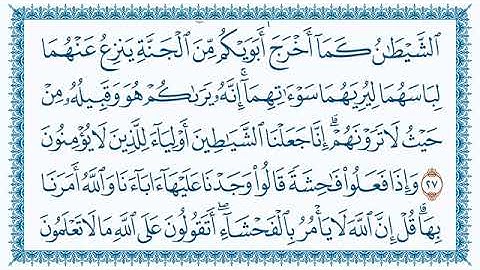 الشَّيْطَـٰنُ كَمَآ أَخْرَجَ أَبَوَيْكُم مِّنَ ٱلْجَنَّةِ يَنزِعُ عَنْهُمَا
لِبَاسَهُمَا لِيُرِيَهُمَا سَوْءَٰتِهِمَآ ۗ إِنَّهُۥ يَرَىٰكُمْ هُوَ وَقَبِيلُهُۥ مِنْ
حَيْثُ لَا تَرَوْنَهُمْ ۗ إِنَّا جَعَلْنَا ٱلشَّيَـٰطِينَ أَوْلِيَآءَ لِلَّذِينَ لَا يُؤْمِنُونَ
٢٧ وَإِذَا فَعَلُوا۟ فَـٰحِشَةً قَالُوا۟ وَجَدْنَا عَلَيْهَآ ءَابَآءَنَا وَٱللَّهُ أَمَرَنَا
بِهَا ۗ قُلْ إِنَّ ٱللَّهَ لَا يَأْمُرُ بِٱلْفَحْشَآءِ ۖ أَتَقُولُونَ عَلَى ٱللَّهِ مَا لَا تَعْلَمُونَ